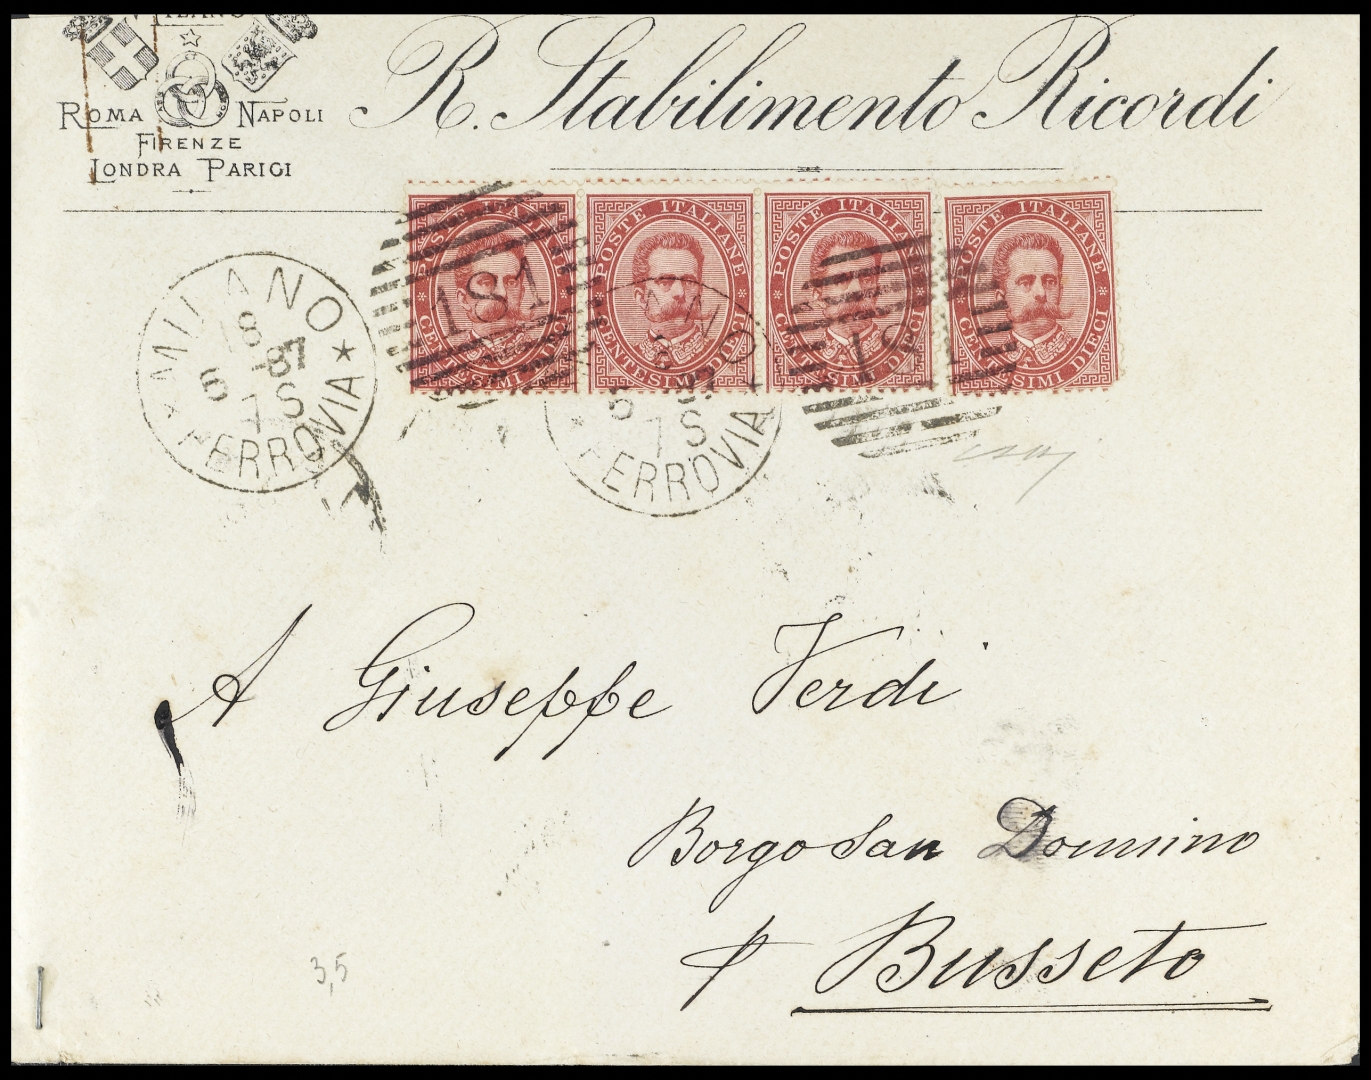 MILANO
ROMA NAPOLI
FIRENZE
LONDRA PARIGI
R. Stabilimento Ricordi
POSTE ITALIANE
CENTESIMI DIECI
POSTE ITALIANE
CENTESIMI DIECI
POSTE ITALIANE
CENTESIMI DIECI
POSTE ITALIANE
CENTESIMI DIECI
181
181
MILANO
18
5 -87
7 S
FERROVIA
MILANO
5
7 S
FERROVIA
A Giuseppe Verdi
Borgo San Donnino
p Busseto
3,5